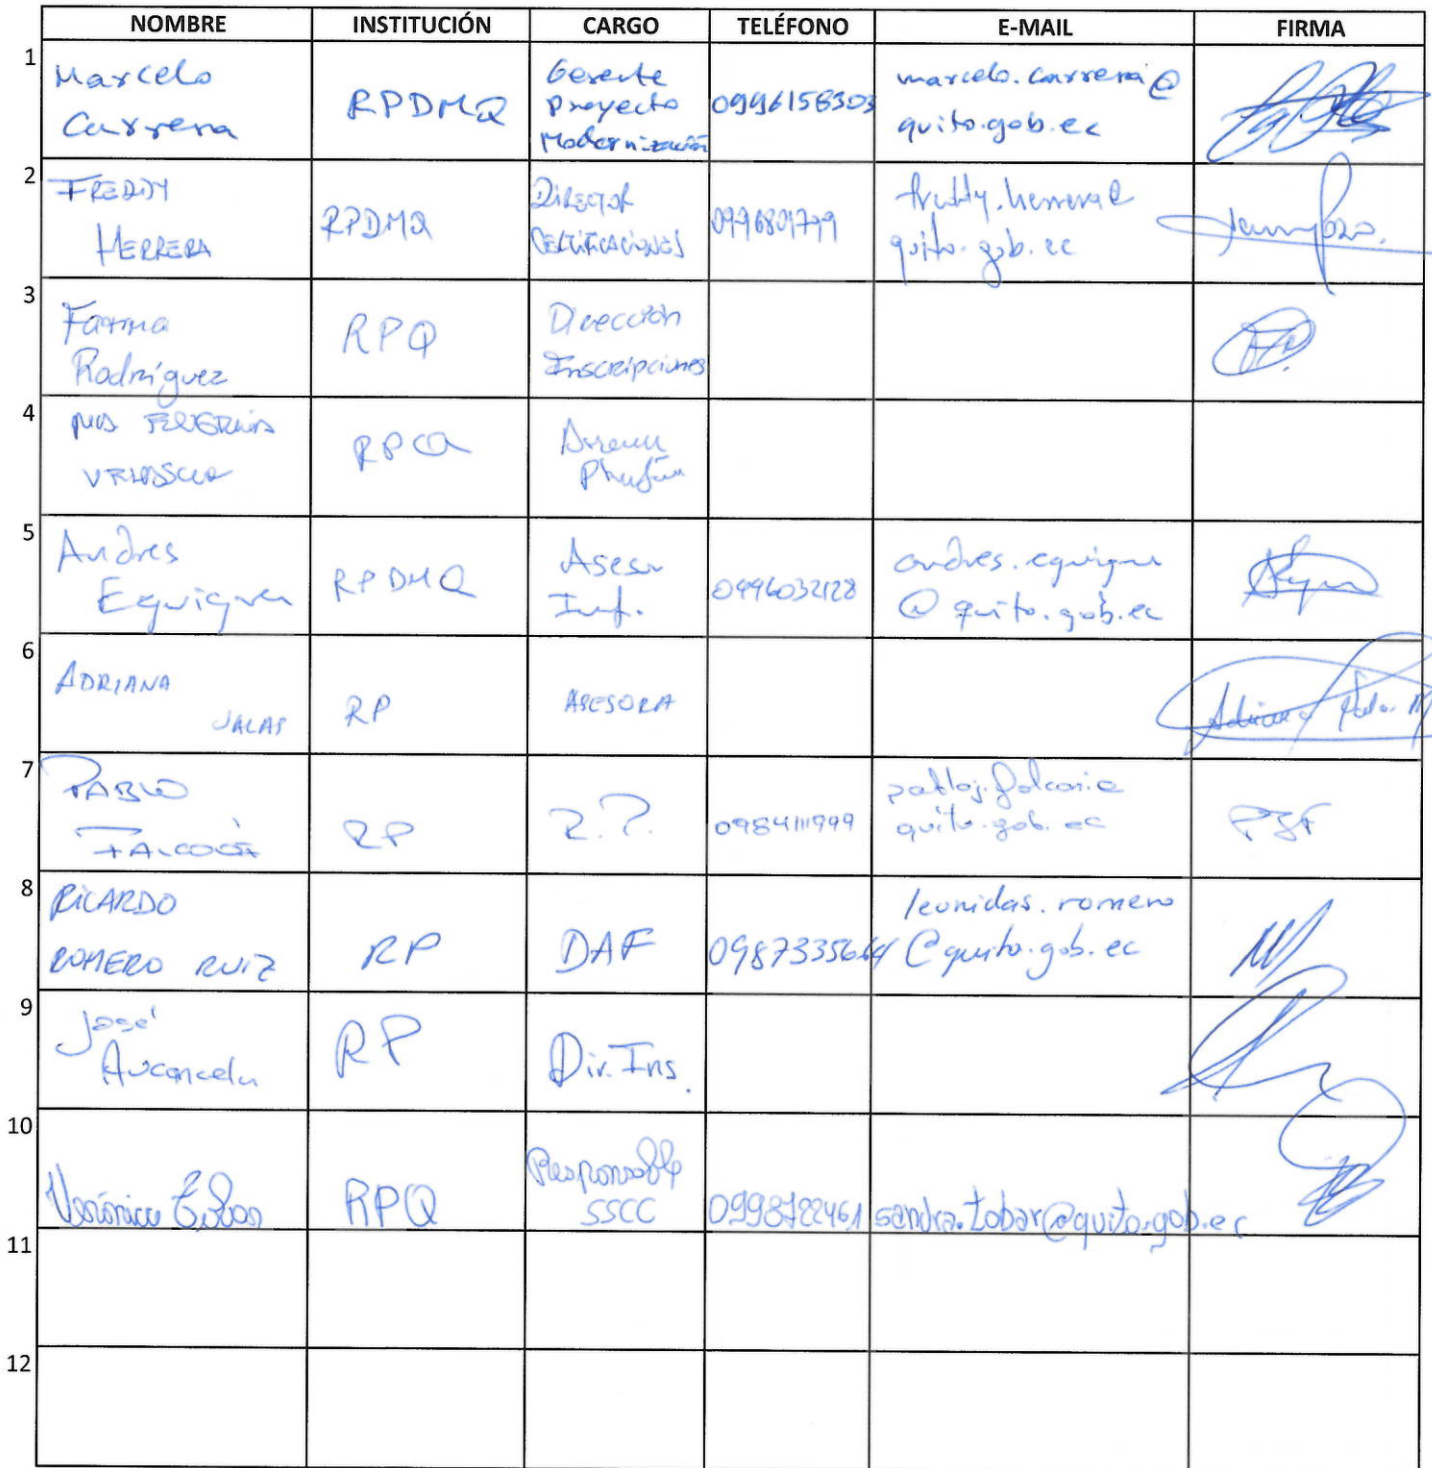 NOMBRE INSTITUCIÓN CARGO TELÉFONO E-MAIL FIRMA
1
Marcelo
Carrera
RPDMQ
Gerente
Proyecto
Modernización
0996158303
marcelo.carrera@
quito.gob.ec
2
FREDDY
HERRERA
RPDMQ
DIRECTOR
CERTIFICACIONES
0996801779
freddy.herrera@
quito.gob.ec
3
Fátima
Rodríguez
RPQ
Dirección
Inscripciones
4
VELASCO
RPQ
5
Andres
Eguiguren
RPDMQ
Asesor
Inf.
0996032128
andres.eguigu
@quito.gob.ec
6
ADRIANA
SALAS
RP
ASESORA
Adriana Salas M
7
PABLO
FALCONÍ
RP
R.P.
0984111999
pabloj.falconi@
quito.gob.ec
PJF
8
RICARDO
ROMERO RUIZ
RP
DAF
0987335664
leonidas.romero
@quito.gob.ec
9
José
Aucancela
RP
Dir. Ins.
10
Verónica Tobar
RPQ
Responsable
SSCC
0998722461
sandra.tobar@quito.gob.ec
11
12